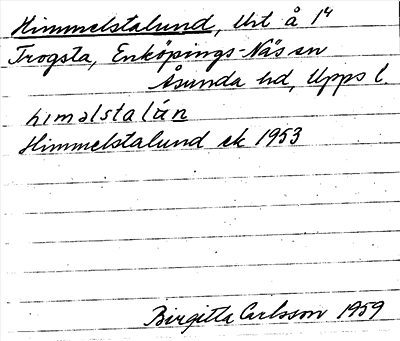 Himmelstalund, Urt å 1⁴
Trogsta, Enköpings-Näs sn
Åsunda hd, Upps l.
hıməlstalán
Himmelstalund ek 1953
Birgitta Carlsson 1959